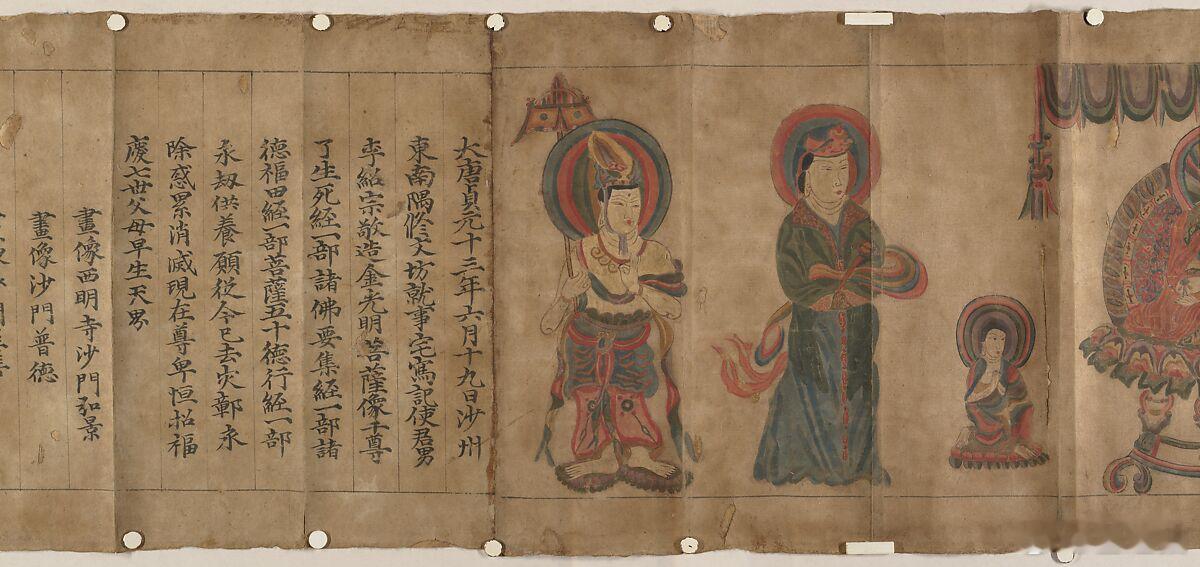 大唐貞元十三年六月十九日沙州
東南隅修文坊就事宅寫記使君男
李紹宗敬造金光明菩薩像千尊
了生死經一部諸佛要集經一部諸
德福田經一部菩薩五十德行經一部
永劫供養願從今已去灾鄣永
除惑累消滅現在尊卑恒招福
慶七世父母早生天界
畫像西明寺沙門弘景
畫像沙門普德